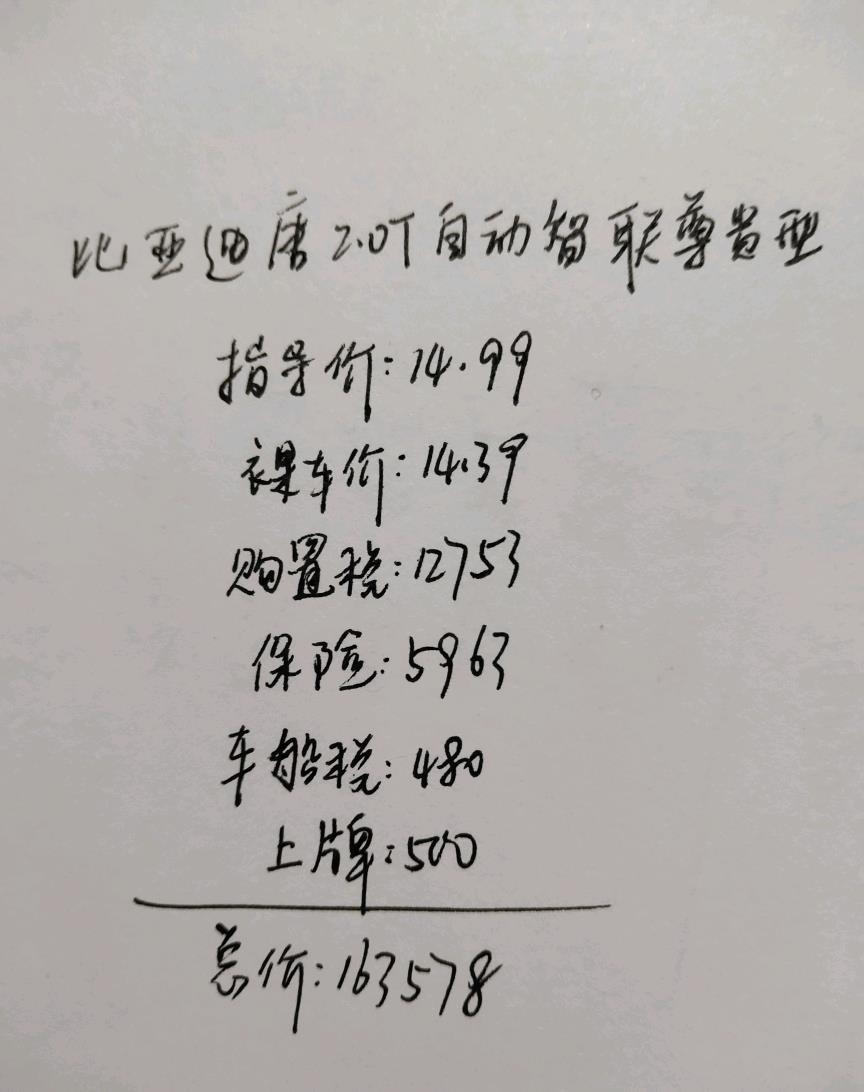 比亚迪唐2.0T自动智联尊贵型
指导价:14.99
裸车价:14.39
购置税:12753
保险:5963
车船税:480
上牌:500
总价:163578